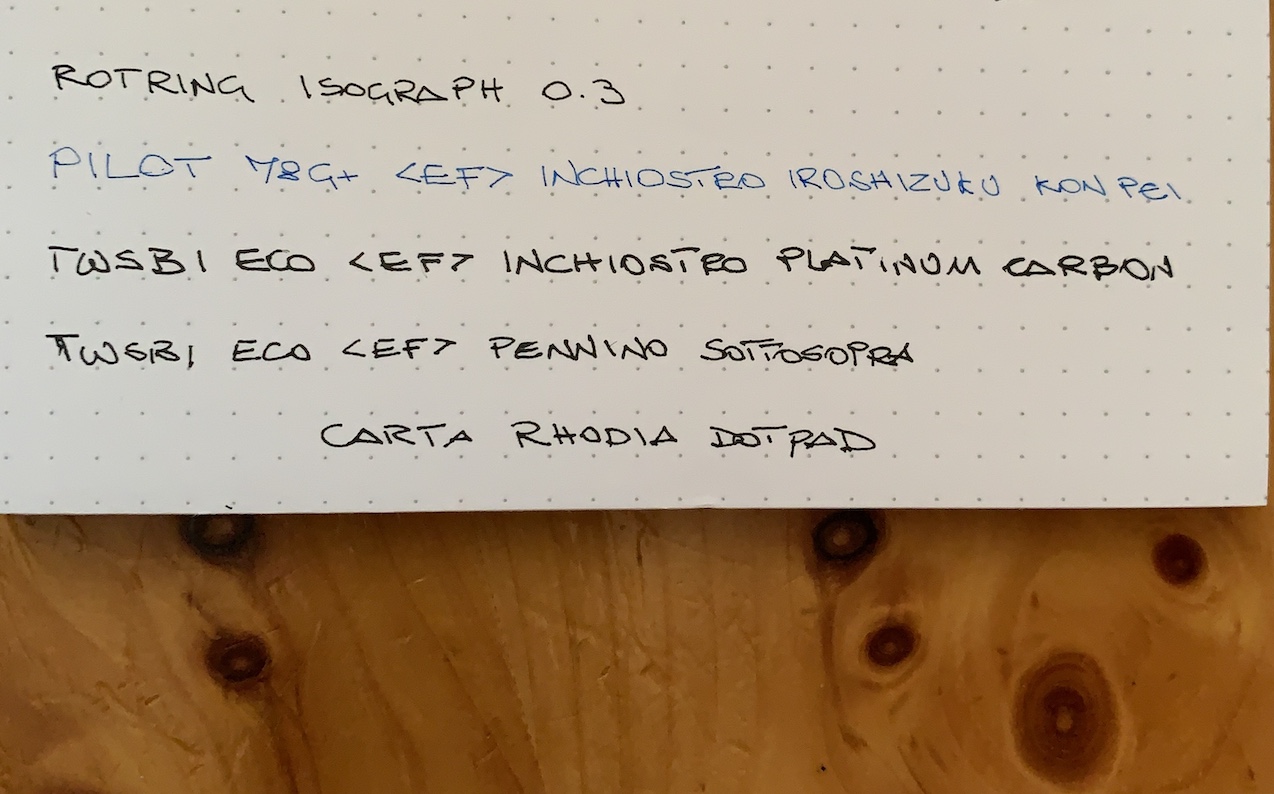 ROTRING ISOGRAPH 0.3
PILOT 78G+ <EF> INCHIOSTRO IROSHIZUKU KON PEI
TWSBI ECO <EF> INCHIOSTRO PLATINUM CARBON
TWSBI ECO <EF> PENNINO SOTTOSOPRA
CARTA RHODIA DOTPAD